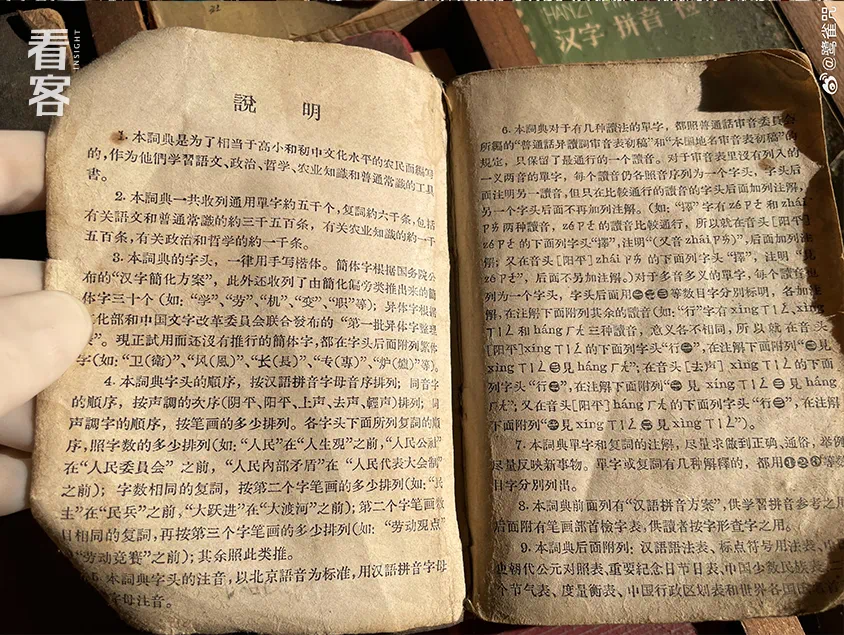 看客
INSIGHT
HANZI
汉字 拼音 检
@鹭雀咒
說 明
1. 本詞典是为了相当于高小和初中文化水平的农民而編写
的,作为他們学習語文、政治、哲学、农业知識和普通常識的工具
書。
2. 本詞典一共收列通用單字約五千个,复詞約六千条,包括
有关語文和普通常識的約三千五百条,有关农业知識的約一千
五百条,有关政治和哲学的約一千条。
3. 本詞典的字头,一律用手写楷体。簡体字根据国务院公
布的“汉字簡化方案”,此外还收列了由簡化偏旁类推出来的簡
体字三十个(如:“学”、“劳”、“机”、“变”、“职”等);异体字根据
化部和中国文字改革委員会联合發布的“第一批异体字整理
”。現正試用而还沒有推行的簡体字,都在字头后面附列繁体
字(如:“卫(衞)”、“风(風)”、“长(長)”、“专(專)”、“炉(爐)”等)。
4. 本詞典字头的順序,按汉語拼音字母音序排列;同音字
的順序,按声調的次序(阴平、阳平、上声、去声、輕声)排列;同
声調字的順序,按笔画的多少排列。各字头下面所列复詞的順
序,照字数的多少排列(如:“人民”在“人生观”之前,“人民公社”
在“人民委員会”之前,“人民内部矛盾”在“人民代表大会制”
之前);字数相同的复詞,按第二个字笔画的多少排列(如:“民
主”在“民兵”之前,“大跃进”在“大渡河”之前);第二个字笔画数
目相同的复詞,再按第三个字笔画的多少排列(如:“劳动观点”
“劳动竞赛”之前);其余照此类推。
5. 本詞典字头的注音,以北京語音为标准,用汉語拼音字母
字母注音。
6. 本詞典对于有几种讀法的單字,都照普通話审音委員会
所編的“普通話异讀詞审音表初稿”和“本国地名审音表初稿”的
規定,只保留了最通行的一个讀音。对于审音表里沒有列入的
一义两音的單字,每个讀音仍各照音序列为一个字头,字头后
面注明另一讀音,但只在比較通行的讀音的字头后面加列注解,
另一个字头后面不再加列注解。(如:“擇”字有 zé ㄗㄜˊ 和 zhái
ㄓㄞˊ 两种讀音,zé ㄗㄜˊ 的讀音比較通行,所以就在音头[阳平]
zé ㄗㄜˊ 的下面列字头“擇”,注明“(又音 zhái ㄓㄞˊ)”,后面加列注
解;又在音头[阳平] zhái ㄓㄞˊ 的下面列字头“擇”,注明“見
zé ㄗㄜˊ”,后面不另加注解。)对于多音多义的單字,每个讀音也
列为一个字头,字头后面用㊀㊁㊂等数目字分別标明,各加注
解,在注解下面附列其余的讀音(如:“行”字有 xíng ㄒㄧㄥˊ、xìng
ㄒㄧㄥˋ 和 háng ㄏㄤˊ 三种讀音,意义各不相同,所以就在音头
[阳平] xíng ㄒㄧㄥˊ 的下面列字头“行㊀”,在注解下面附列“㊁見
xìng ㄒㄧㄥˋ ㊂見 háng ㄏㄤˊ”;在音头[去声] xìng ㄒㄧㄥˋ 的下面
列字头“行㊁”,在注解下面附列“㊀見 xíng ㄒㄧㄥˊ ㊂見 háng
ㄏㄤˊ”;又在音头[阳平] háng ㄏㄤˊ 的下面列字头“行㊂”,在注解
下面附列“㊀見 xíng ㄒㄧㄥˊ ㊁見 xìng ㄒㄧㄥˋ”)。
7. 本詞典單字和复詞的注解,尽量求做到正确、通俗,举例
尽量反映新事物。單字或复詞有几种解釋的,都用❶❷❸等数
目字分別列出。
8. 本詞典前面列有“汉語拼音方案”,供学習拼音参考之用;
后面附有笔画部首檢字表,供讀者按字形查字之用。
9. 本詞典后面附列:汉語語法表、标点符号用法表、中
史朝代公元对照表、重要紀念日节日表、中国少数民族表、二
个节气表、度量衡表、中国行政区划表和世界各国